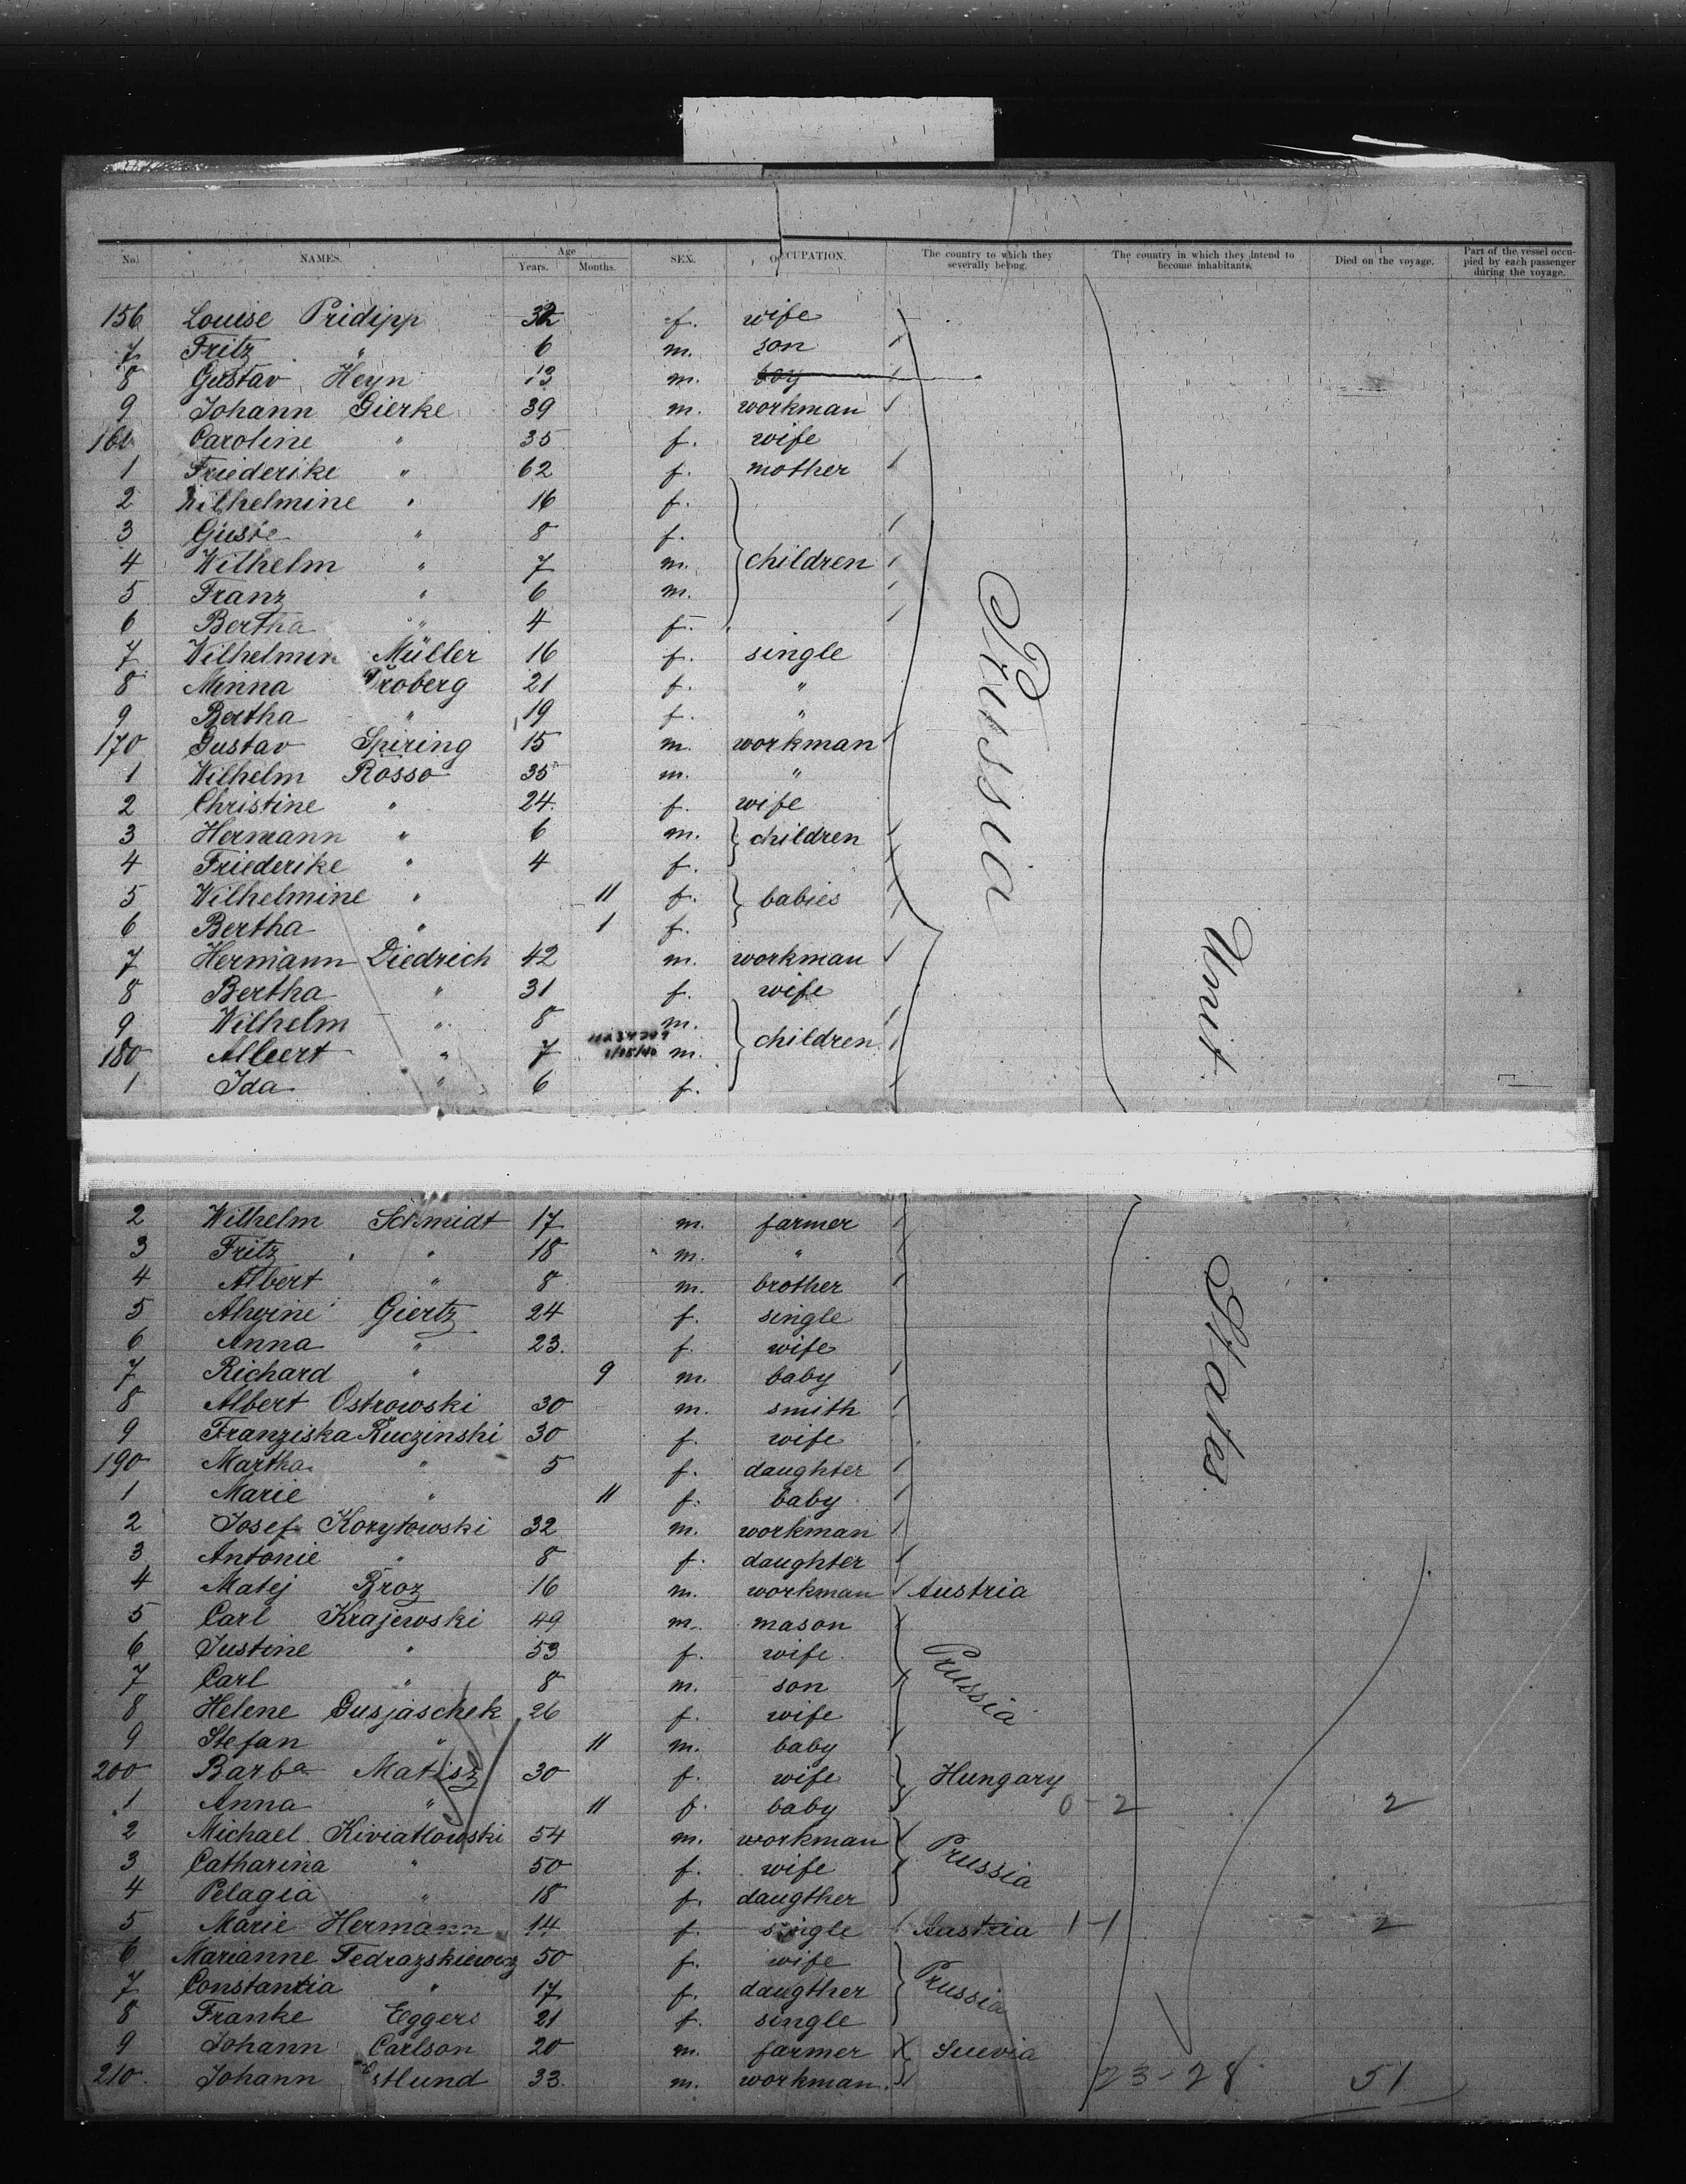 No. NAMES. Age Years. Months. SEX. OCCUPATION. The country to which they severally belong. The country in which they intend to become inhabitants. Died on the voyage. Part of the vessel occupied by each passenger during the voyage.
156 Louise Pridipp 32 f. wife
7 Fritz " 6 m. son
8 Gustav Heyn 13 m. boy
9 Johann Gierke 39 m. workman
160 Caroline " 35 f. wife
1 Friederike " 62 f. mother
2 Wilhelmine " 16 f.
3 Guste " 8 f.
4 Wilhelm " 7 m. children
5 Franz " 6 m.
6 Bertha " 4 f.
7 Wilhelmin Müller 16 f. single
8 Minna Droberg 21 f. "
9 Bertha " 19 f. "
170 Gustav Spiring 15 m. workman
1 Wilhelm Rosso 35 m. "
2 Christine " 24 f. wife
3 Hermann " 6 m. children
4 Friederike " 4 f.
5 Wilhelmine " 11 f. babies
6 Bertha " 1 f.
7 Hermann Diedrich 42 m. workman
8 Bertha " 31 f. wife
9 Wilhelm " 8 m.
180 Albert " 7 m. children
1 Ida " 6 f.
Prussia
Unit.
2 Wilhelm Schmidt 17 m. farmer
3 Fritz " 18 m. "
4 Albert " 8 m. brother
5 Alwine Giertz 24 f. single
6 Anna " 23. f. wife
7 Richard " 9 m. baby
8 Albert Ostrowski 30 m. smith
9 Franziska Ruczinski 30 f. wife
190 Martha " 5 f. daughter
1 Marie " 11 f. baby
2 Josef Korytowski 32 m. workman
3 Antonie " 8 f. daughter
4 Matej Broz 16 m. workman Austria
5 Carl Krajewski 49 m. mason
6 Justine " 53 f. wife Prussia
7 Carl " 8 m. son
8 Helene Gusjaschek 26 f. wife
9 Stefan " 11 m. baby
200 Barba Matisz 30 f. wife Hungary
1 Anna " 11 f. baby 0-2 2
2 Michael Kiviatlowski 54 m. workman
3 Catharina " 50 f. wife Prussia
4 Pelagia " 18 f. daugther
5 Marie Hermann 14 f. single Austria 1-1 2
6 Marianne Fedrazskiewicz 50 f. wife
7 Constantia " 17 f. daugther Prussia
8 Franke Eggers 21 f. single
9 Johann Carlson 20 m. farmer Suevia
210. Johann Estlund 33. m. workman. 23-28 51
States